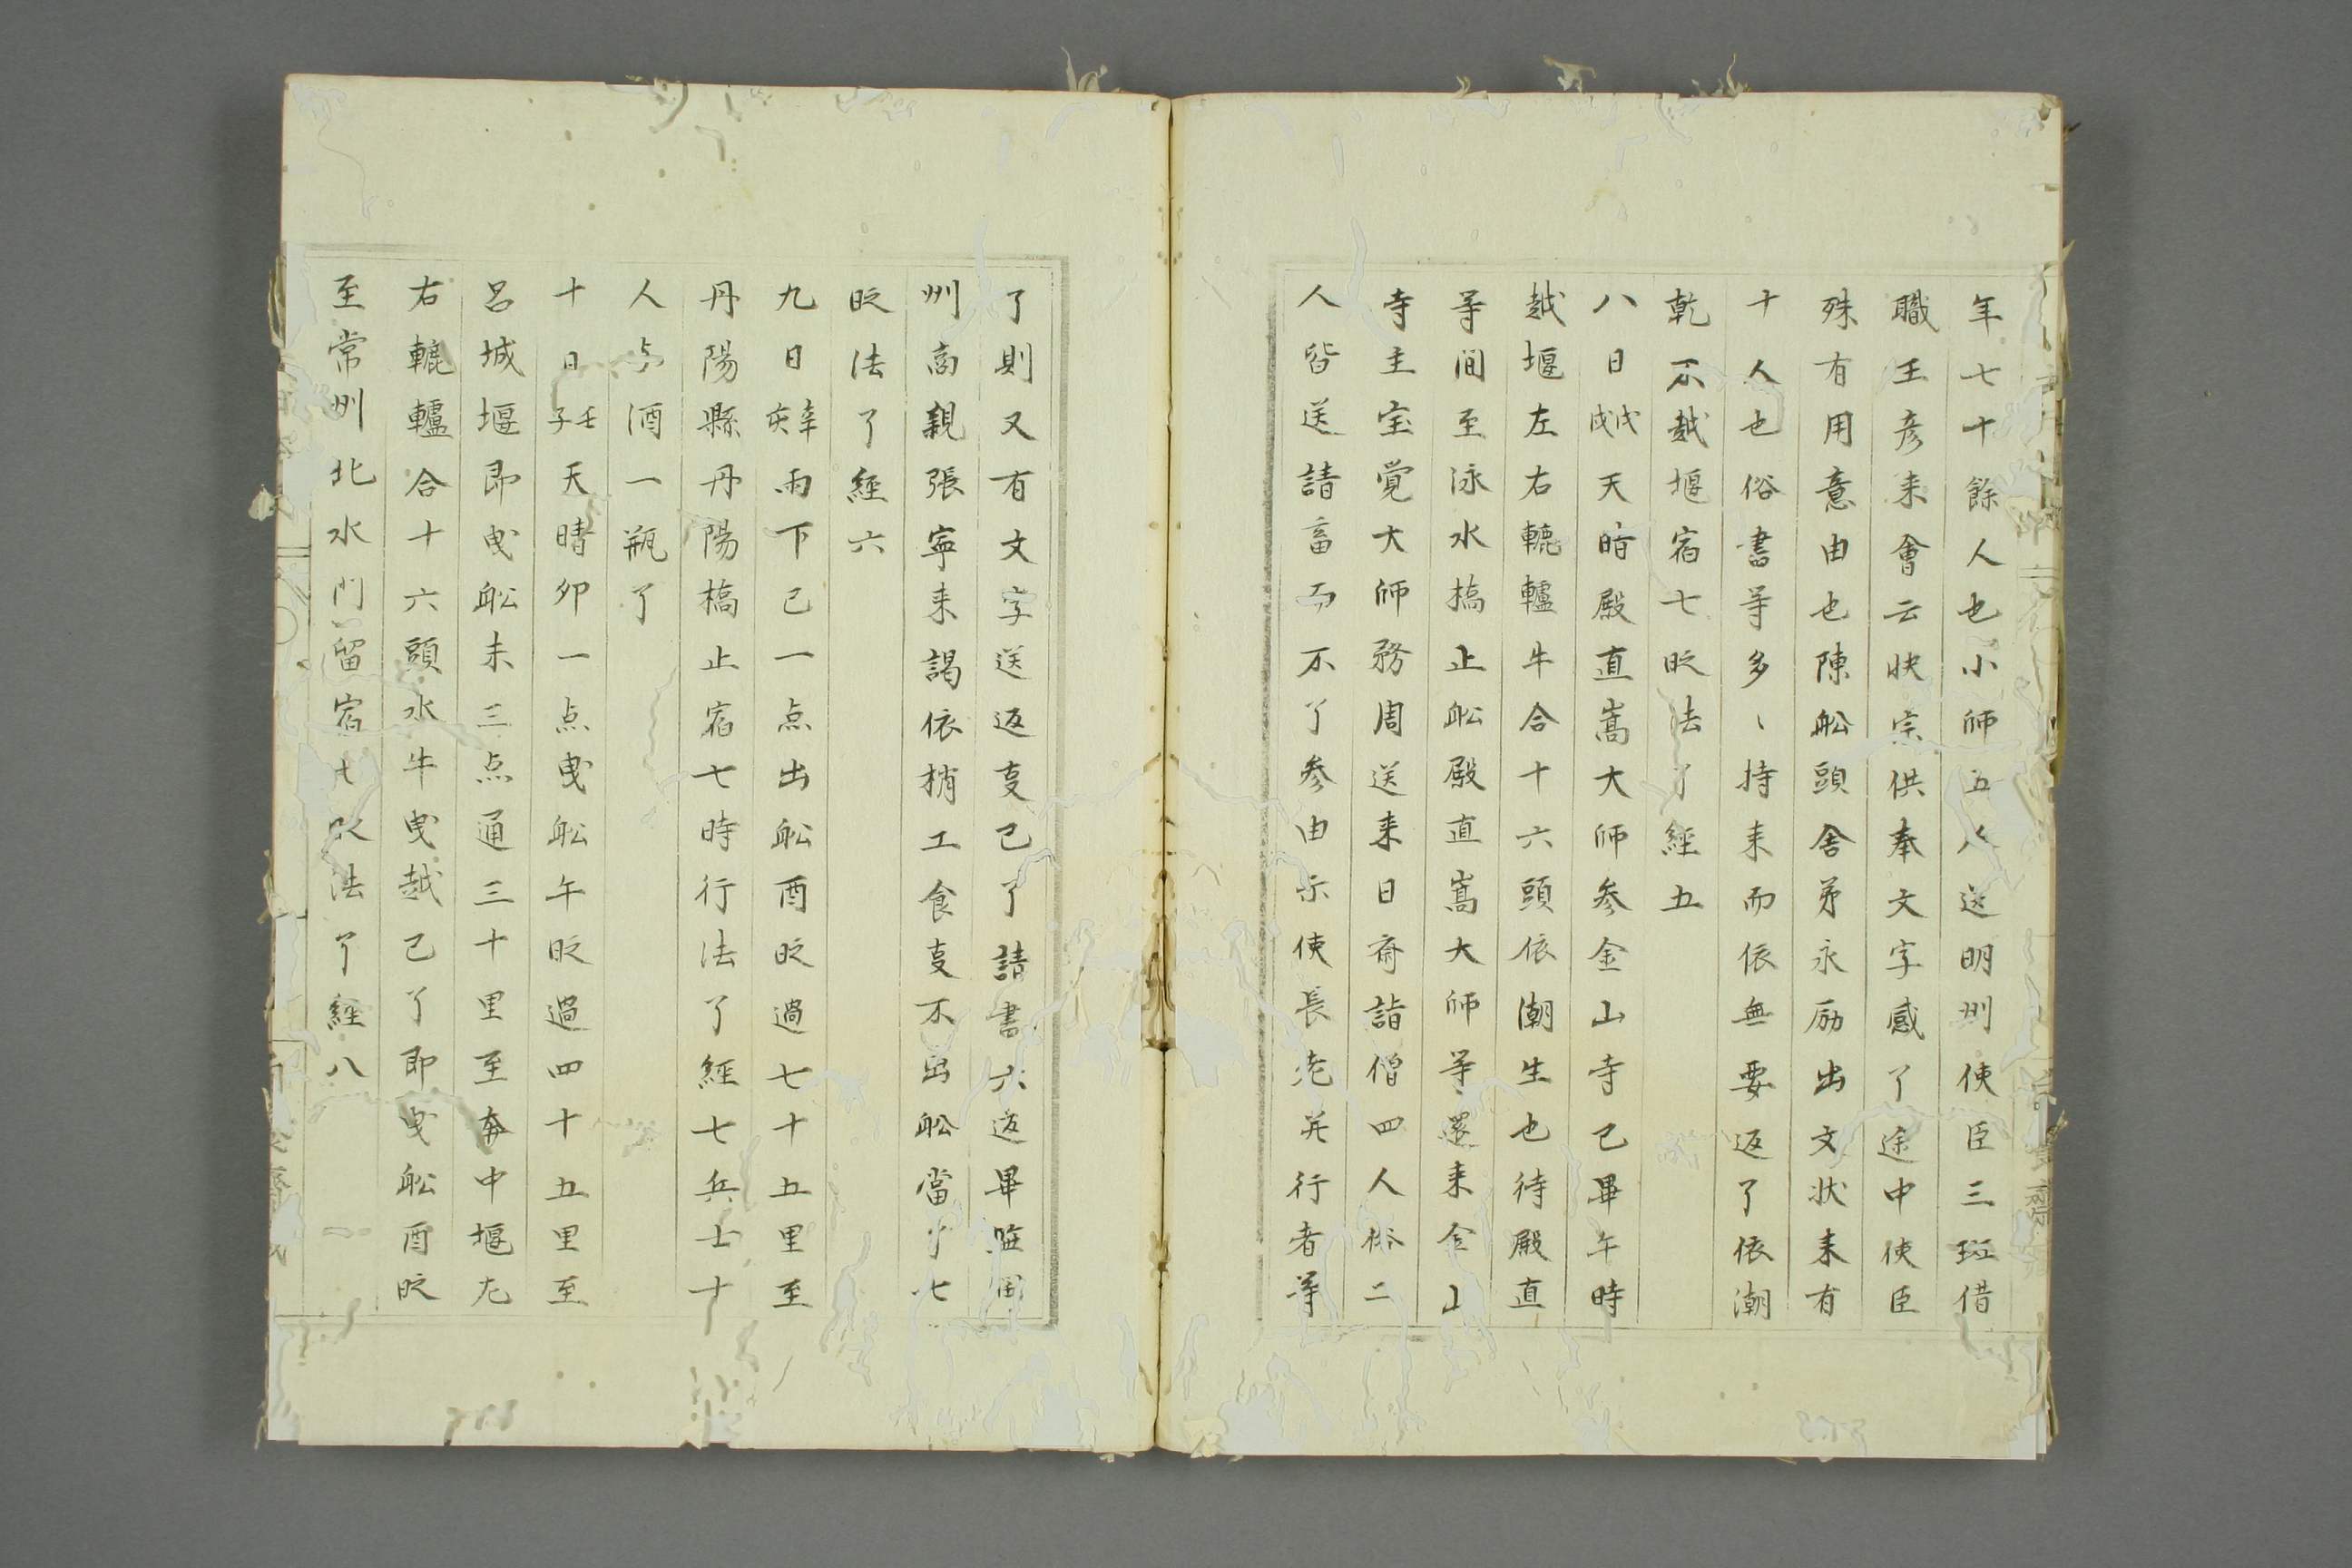 年七十餘人也小師五人送明州使臣三班借
職王彦来會云快宗供奉文字感了途中使臣
殊有用意由也陳舩頭舎弟永励出文状来有
十人也俗書等多〻持来而依無要返了依潮
乾不越堰宿七時法了經五
八日戊戌天晴殿直嵩大師参金山寺已畢午時
越堰左右轆轤牛合十六頭依潮生也待殿直
等間至泳水橋止舩殿直嵩大師等還来金山
寺主宝覚大師務周送来日斎請僧四人俗二
人皆送請書而不了参由示使長老并行者等
了則又有文字送返事已了請書六返畢
州商親張寧来謁依梢工食事不出舩當了七
時法了經六
九日辛亥雨下已一点出舩酉時過七十五里至
丹陽縣丹陽橋止宿七時行法了經七兵士十
人与酒一瓶了
十日壬子天晴卯一点曳舩午時過四十五里至
呂城堰即曳舩未三点通三十里至奔牛堰左
右轆轤合十六頭水牛曳越已了即曳舩酉時
至常州北水門留宿七時法了經八